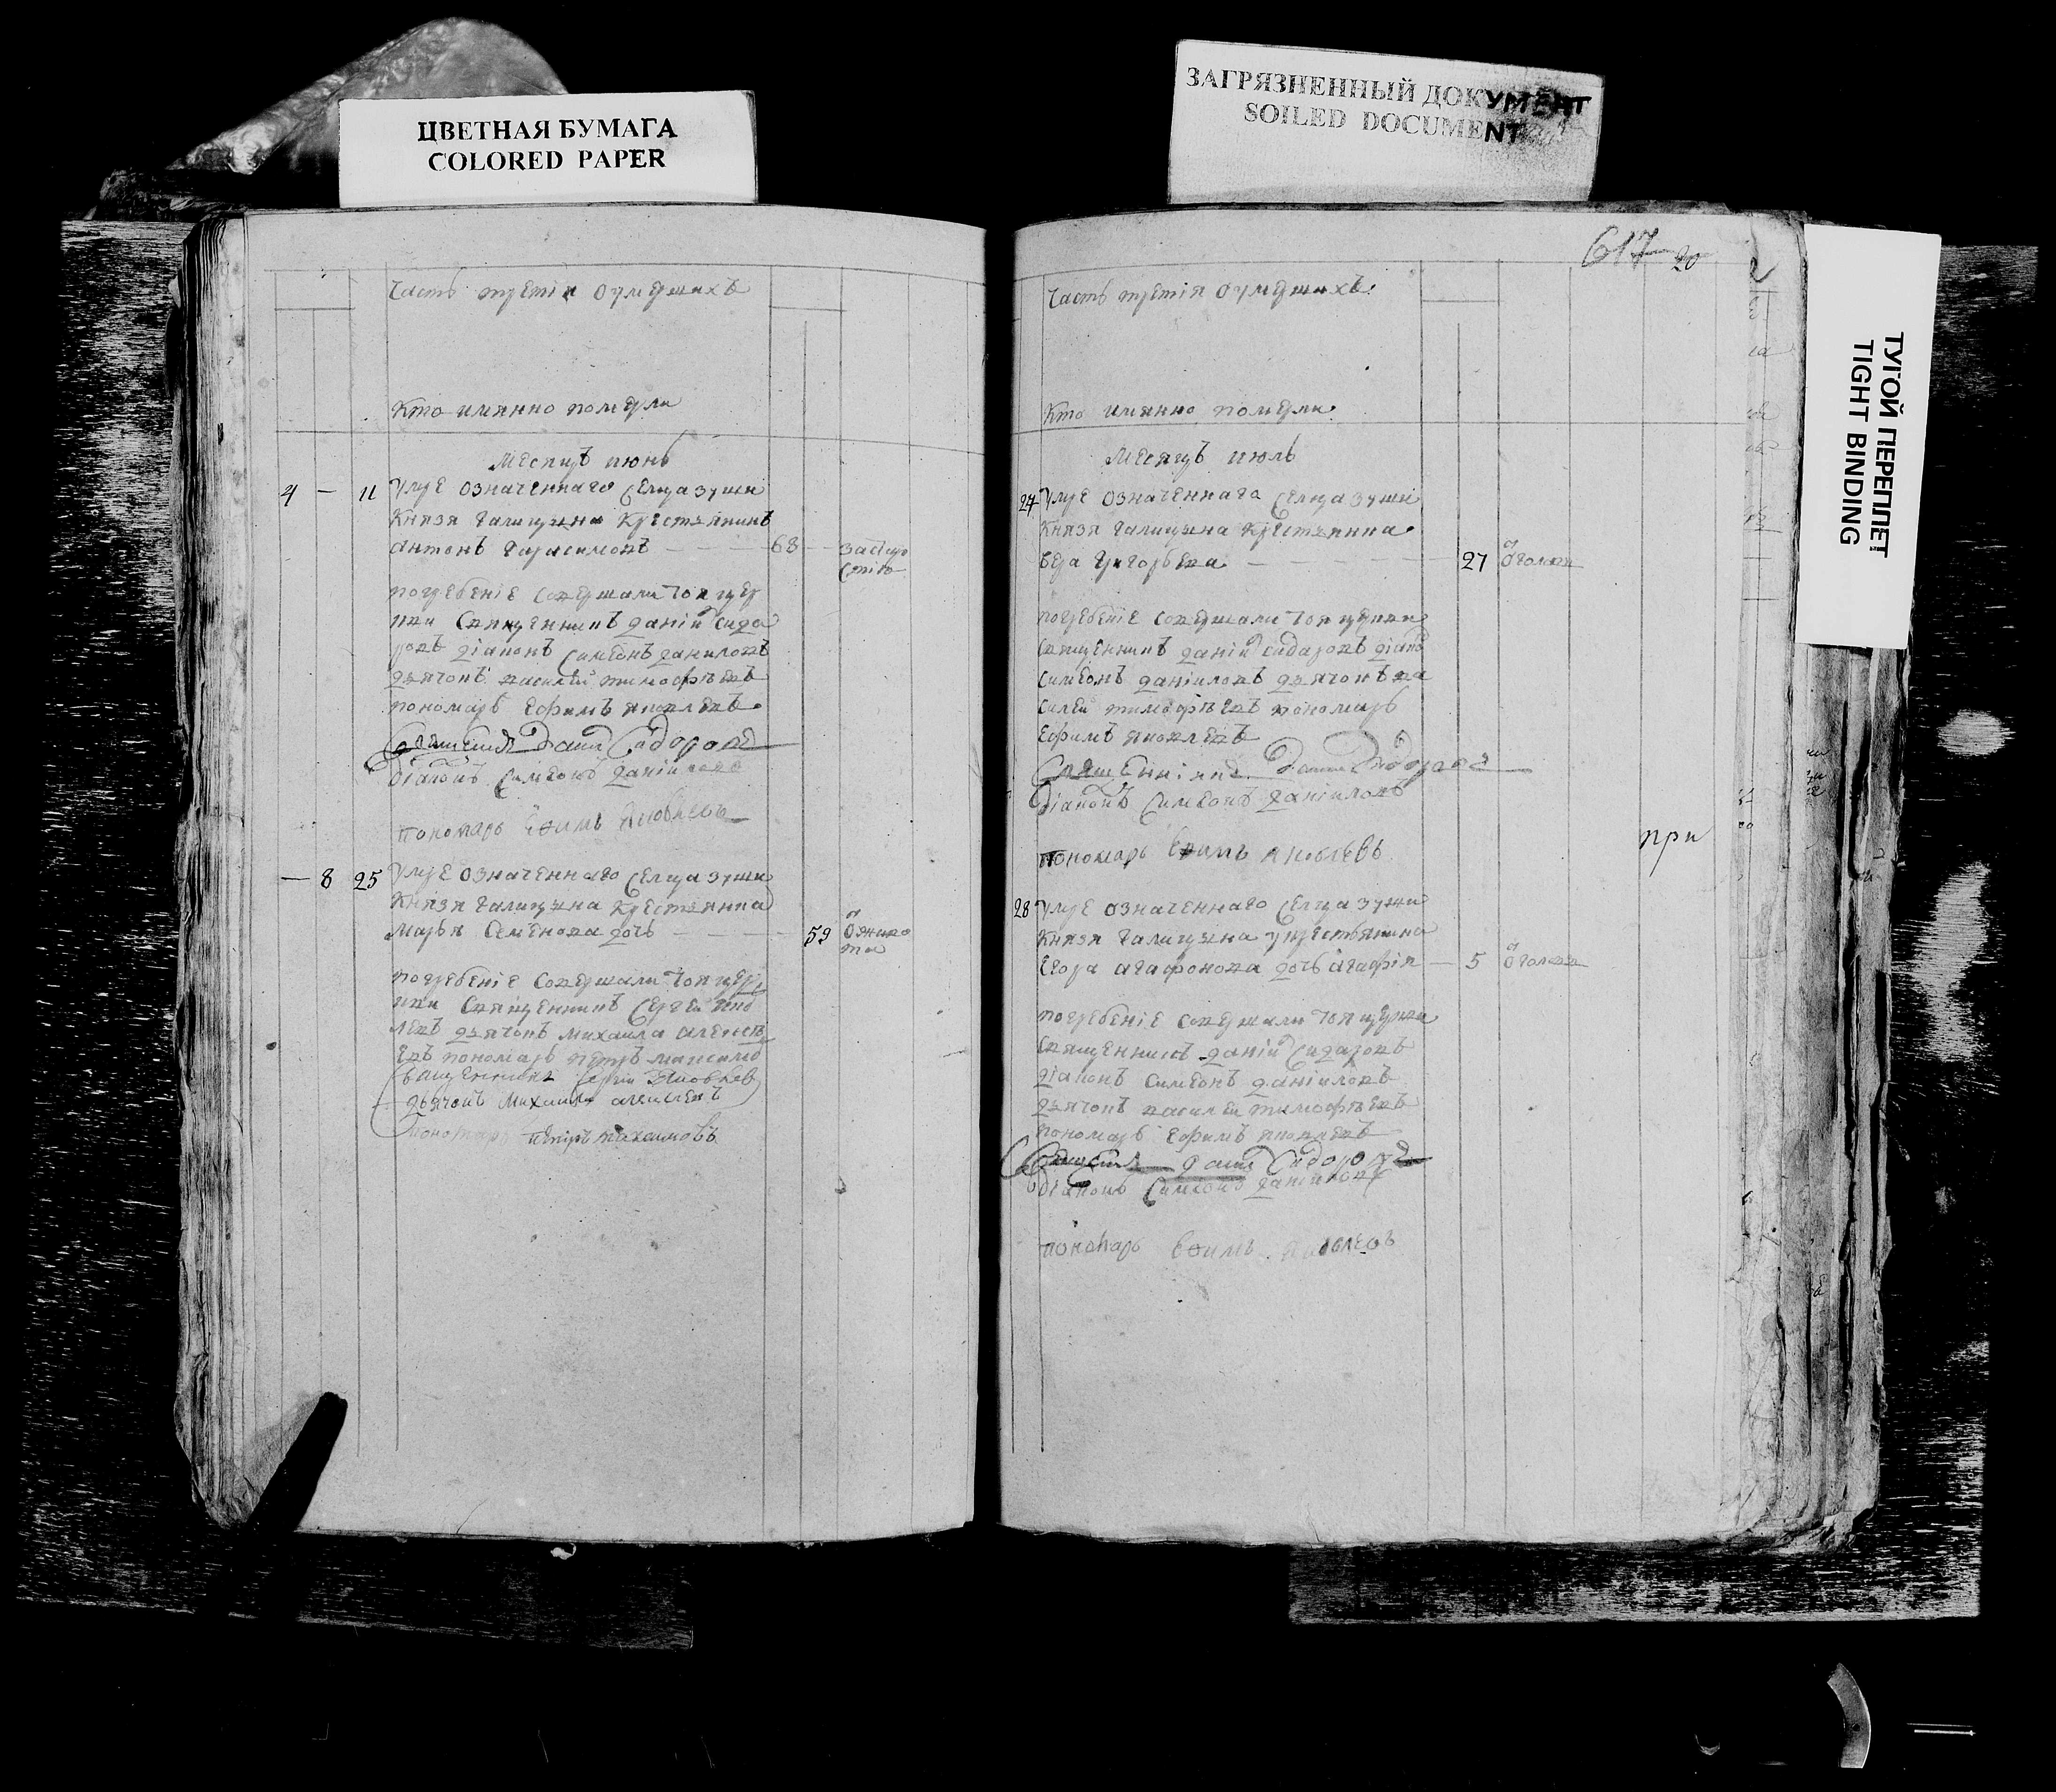 ЦВЕТНАЯ БУМАГА
COLORED PAPER
ЗАГРЯЗНЕННЫЙ ДОКУМЕНТ
SOILED DOCUMENT
ТУГОЙ ПЕРЕПЛЕТ
TIGHT BINDING
Часть третія оумершихъ
Кто имянно померли
Месяцъ июнь
4 — 11 Умре означеннаго селца зуши
Князя Галицына Крестьянинъ
Антонъ Гарасимовъ 68
погребеніе совершали тоя цер
кви священникъ даній сидо
ровъ діаконъ Симеонъ даниловъ
дьячокъ василей тимофѣевъ
пономарь Ефимъ яковлевъ
Сидоровъ
діаконъ Симеонъ даніиловъ
пономарь Ефимъ Яковлевъ
— 8 25 Умре означеннаго селца зуши
Князя Галицына Крестьянка
марья Семенова дочь 59
погребеніе совершали тоя цер
кви священникъ Сергей яко
левъ дьячокъ михаила алексѣ
евъ пономарь петръ максимо
священникъ Сергий Яковлев
дьячокъ михаила алексеевъ
пономарь петръ максимовъ
617 20
Часть третія оумершихъ
Кто имянно померли
Месяцъ июль
24 Умре означеннаго селца зуши
Князя Галицына Крестьянка
вера григорьева 27
погребеніе совершали тоя церкви
священникъ даній сидаровъ діако
симеонъ даніиловъ дьячокъ ва
силей тимофѣевъ пономарь
Ефимъ яковлевъ
Сидоровъ
діаконъ Симеонъ даніиловъ
пономарь Ефимъ яковлевъ
при
28 Умре означеннаго селца зуши
Князя Галицына у крестьянина
Егора агафонова дочь агафія 5
погребеніе совершали тоя церкви
священникъ даній Сидаровъ
діаконъ симеонъ даніиловъ
дьячокъ василей тимофѣевъ
пономарь Ефимъ яковлевъ
Сидоровъ
діаконъ Симеонъ даніиловъ
пономарь Ефимъ яковлевъ